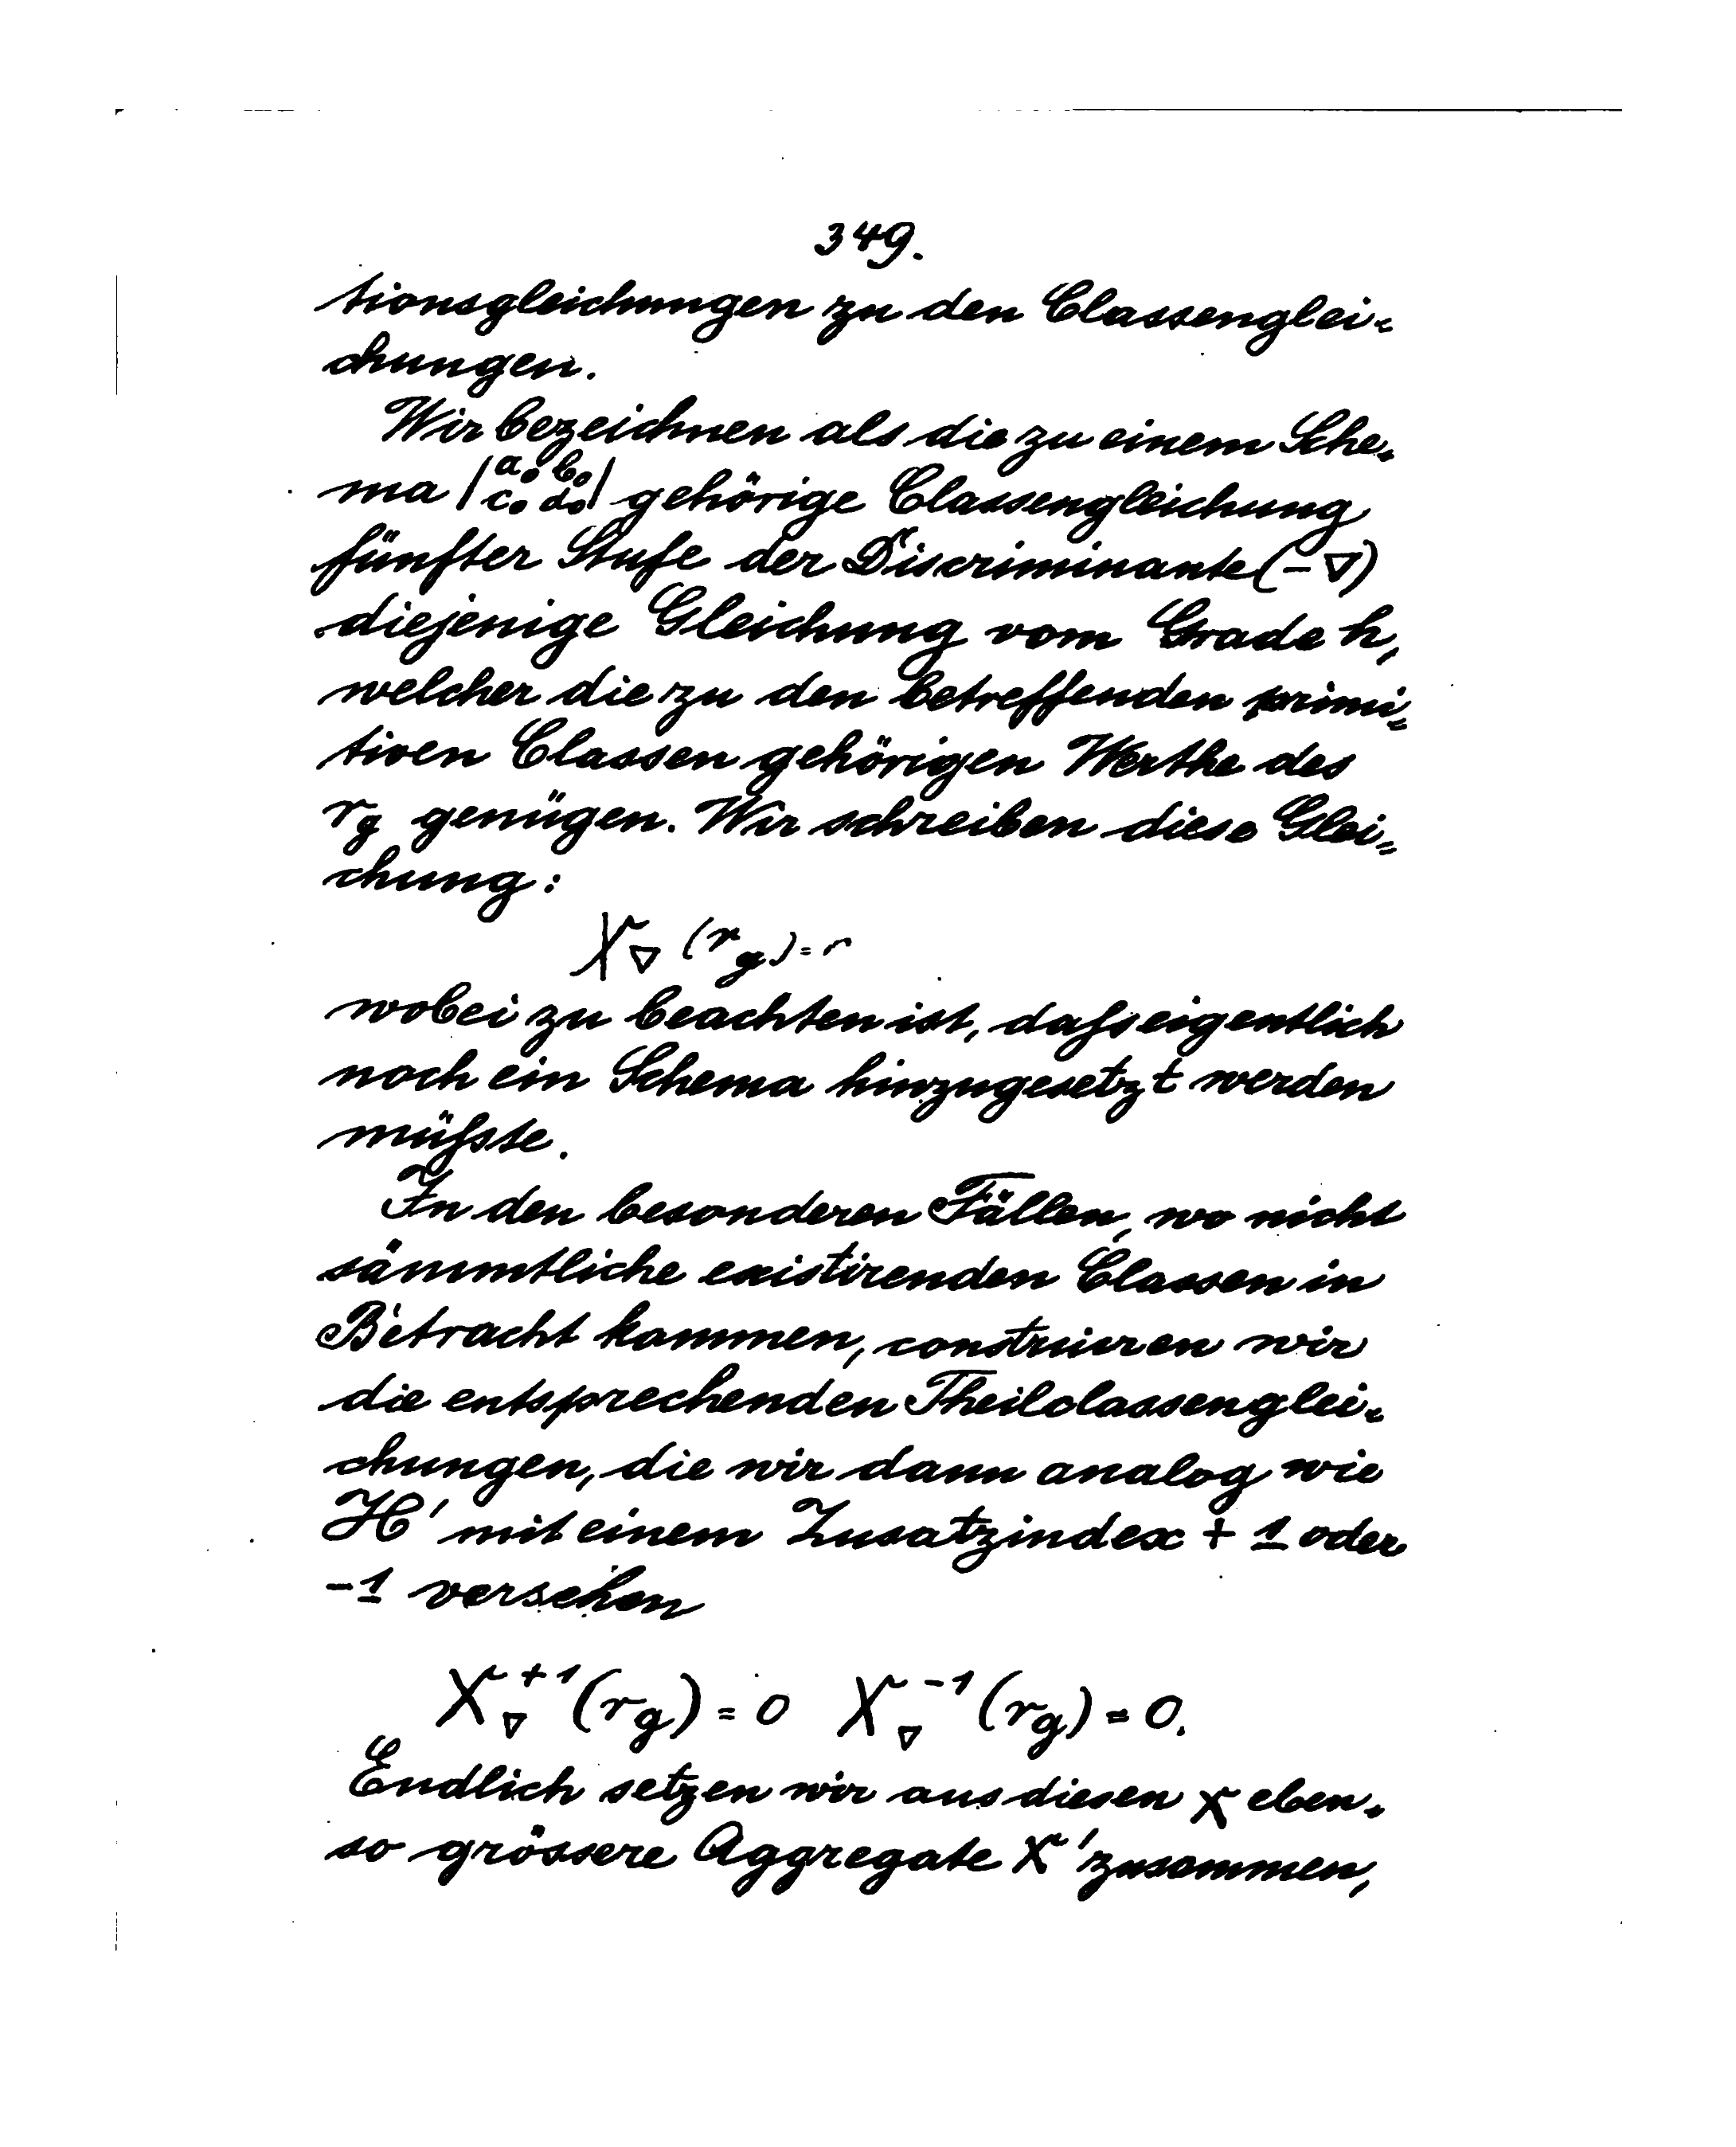 349.
tionsgleichungen zu den Classenglei-
chungen.
Wir bezeichnen als die zu einem Sche-
ma |a₀ b₀ c₀ d₀| gehörige Classengleichung
fünfter Stufe der Discriminante (-∇)
diejenige Gleichung vom Grade h,
welcher die zu den betreffenden primi=
tiven Classen gehörigen Werthe des
r_g genügen. Wir schreiben diese Glei=
chung:
X_∇ (r_g) =
wobei zu beachten ist, daſs eigentlich
noch ein Schema hinzugesetzt werden
müſste.
In den besonderen Fällen, wo nicht
sämmtliche existirenden Classen in
Betracht kommen, construiren wir
die entsprechenden Theilclassenglei-
chungen, die wir dann analog wie
H' mit einem Zusatzindex + 1 oder
-1 versehen
X_∇^{+1} (r_g) = 0 X_∇^{-1} (r_g) = 0.
Endlich setzen wir aus diesen X eben-
so grössere Aggregate X' zusammen,